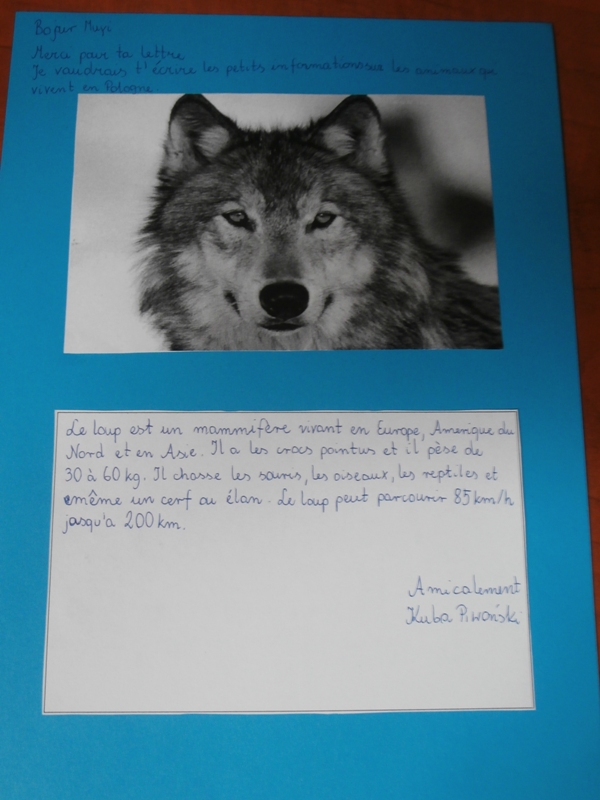 Merci pour ta lettre
Je voudrais t'écrire les petits informations sur les animaux qe
vivent en Pologne.
Le loup est un mammifère vivant en Europe, Amerique du
Nord et en Asie. Il a les crocs pointus et il pèse de
30 à 60 kg. Il chasse les souris, les oiseaux, les reptiles et
même un cerf ou élan. Le loup peut parcourir 85 km/h
jusqu'a 200 km.
Amicalement
Kuba Piwoński